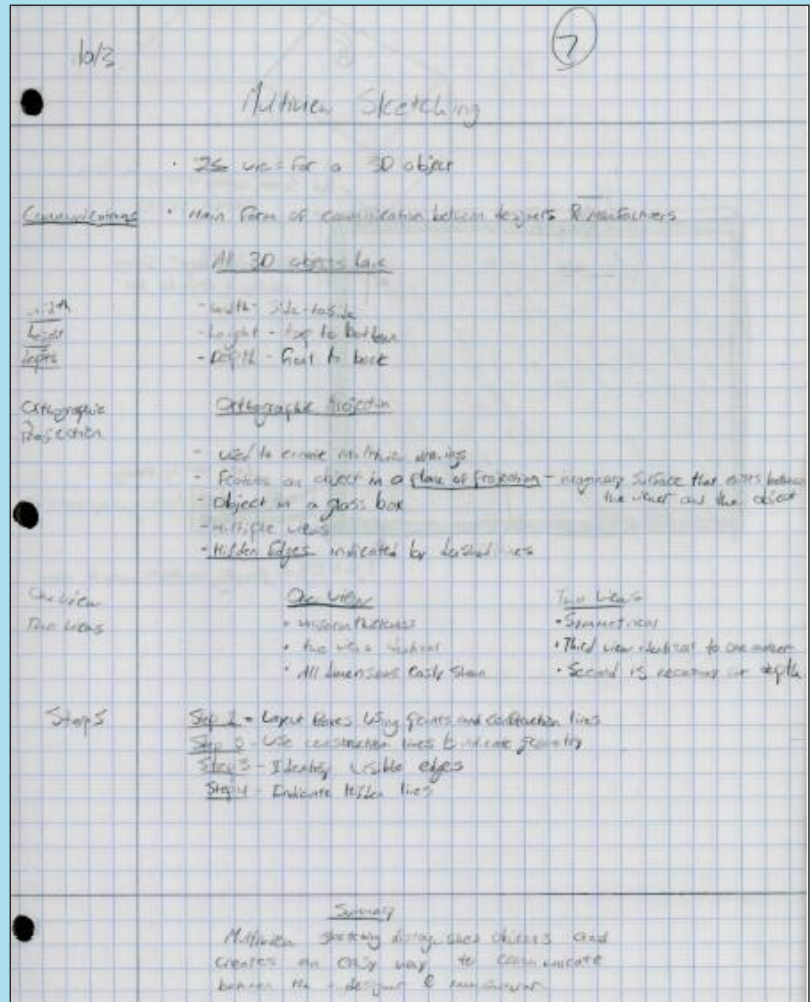 10/3
7
Multiview Sketching
• 2≤ views for a 3D object
Communications • Main form of communication between designers & manufacturers
All 3D objects have
width - width - side-to-side
height - height - top to bottom
depth - Depth - front to back
Orthographic Orthographic Projection
Projection
- used to create multiview drawings
- Features an object in a plane of projection - imaginary surface that exists between
the viewer and the object
- Object in a glass box
- multiple views
- Hidden Edges indicated by dashed lines
One view One view Two views
Two views • uniform thickness • Symmetrical
• two views identical • Third view identical to one another
• All dimensions easily shown • Second is necessary for depth
Steps Step 1 - Layout Boxes using points and construction lines
Step 2 - Use construction lines to indicate geometry
Step 3 - Identify visible edges
Step 4 - Indicate Hidden lines
Summary
Multiview sketching and
creates an easy way to communicate
between the designer &